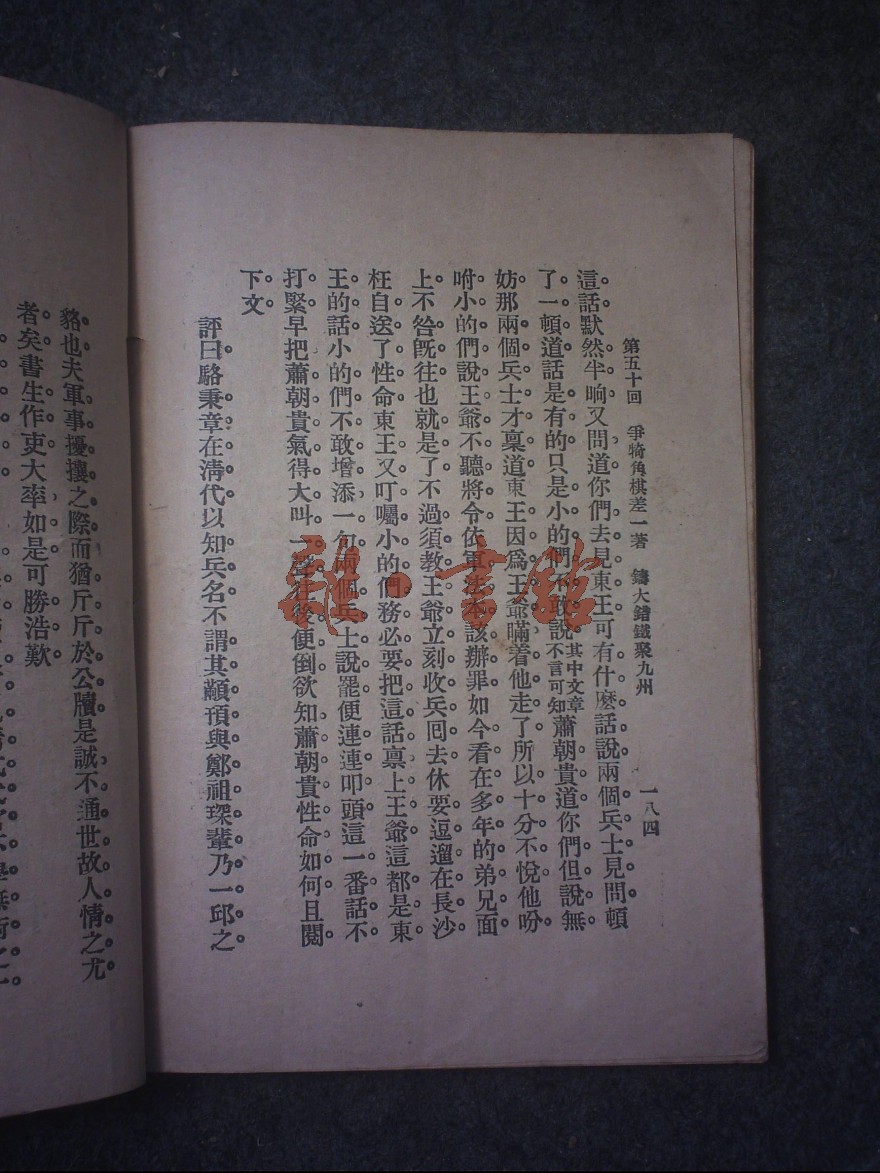 第五十回　爭犄角棋差一著　鑄大錯鐵聚九州　一八四
這話默然半晌又問道你們去見東王可有什麼話說兩個兵士見問頓
了一頓道話是有的只是小的們不敢說其中文章不言可知蕭朝貴道你們但說無
妨那兩個兵士才稟道東王因爲王爺瞞着他走了所以十分不悅他吩
咐小的們說王爺不聽將令依軍法本該辦罪如今看在多年的弟兄面
上不咎旣往也就是了不過須教王爺立刻收兵囘去休要逗遛在長沙
枉自送了性命東王又叮囑小的們務必要把這話禀上王爺這都是東
王的話小的們不敢增添一句兩個兵士說罷便連連叩頭這一番話不
打緊早把蕭朝貴氣得大叫一聲往後便倒欲知蕭朝貴性命如何且閱
下文
評曰駱秉章在清代以知兵名不謂其顢預與鄭祖琛輩乃一邱之
貉也夫軍事擾攘之際而猶斤斤於公牘是誠不通世故人情之尤
者矣書生作吏大率如是可勝浩歎
雜·書館